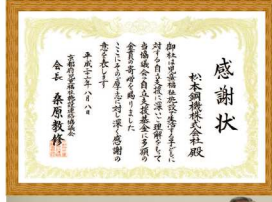 感謝状
松本鋼機株式会社殿
御社は児童福祉施設で生活する子どもに
対する自立支援に深いご理解をして
当協議会の自立支援基金に多額の
金員の寄贈を賜りました
ここにその厚志に対し深く感謝の
意を表します
平成二十二年八月八日
京都府児童福祉施設連絡協議会
会長 桑原教修